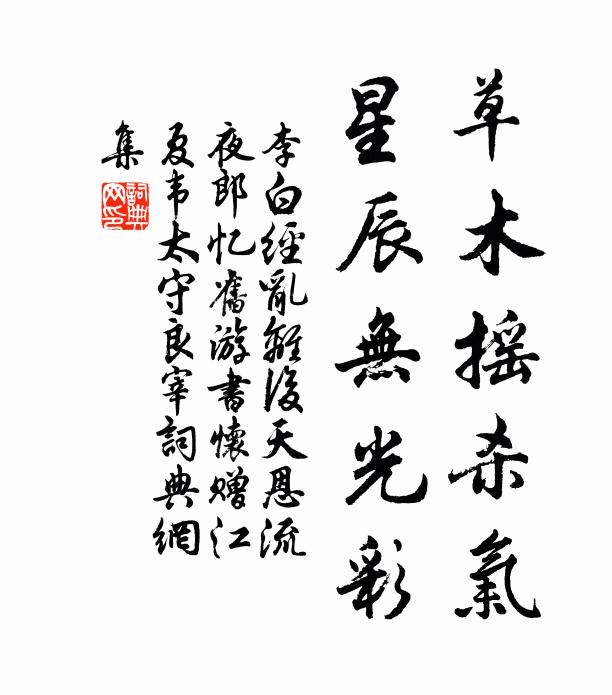 草木摇杀氣
星辰無光彩
李白經亂離後天恩流
夜郎忆舊游書懷赠江
夏韦太守良宰詞典網
集
詞典
网印